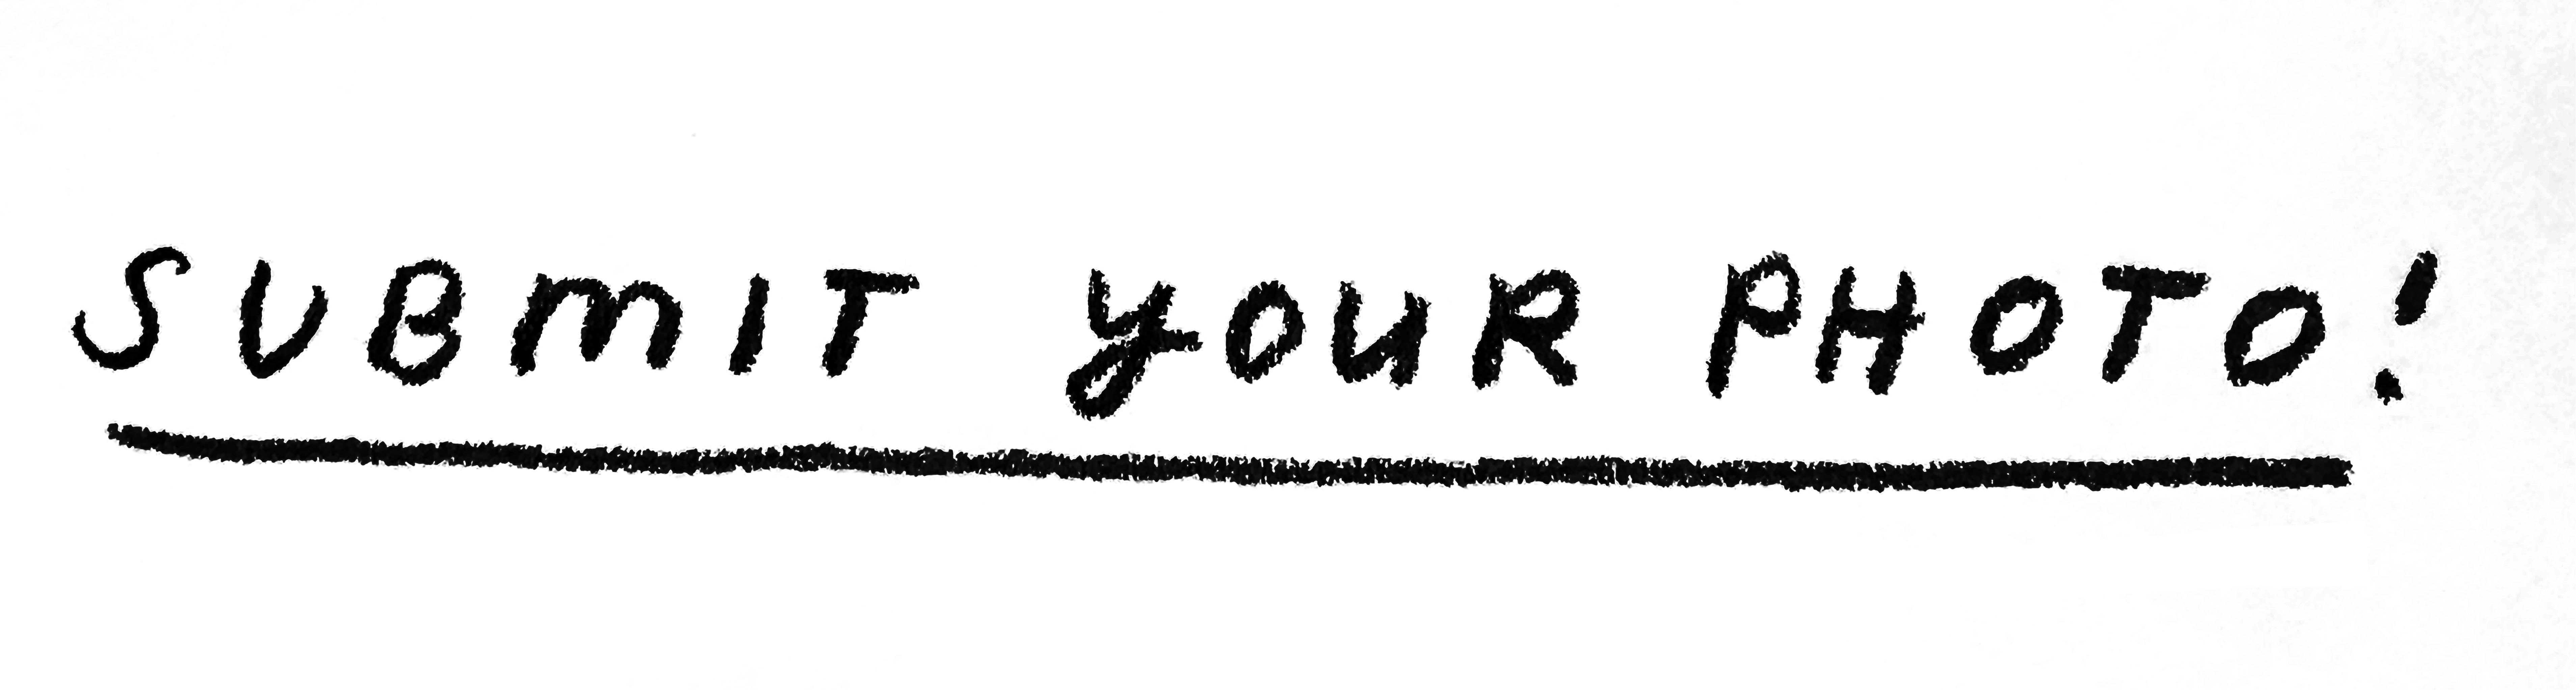 SUBMIT YOUR PHOTO!